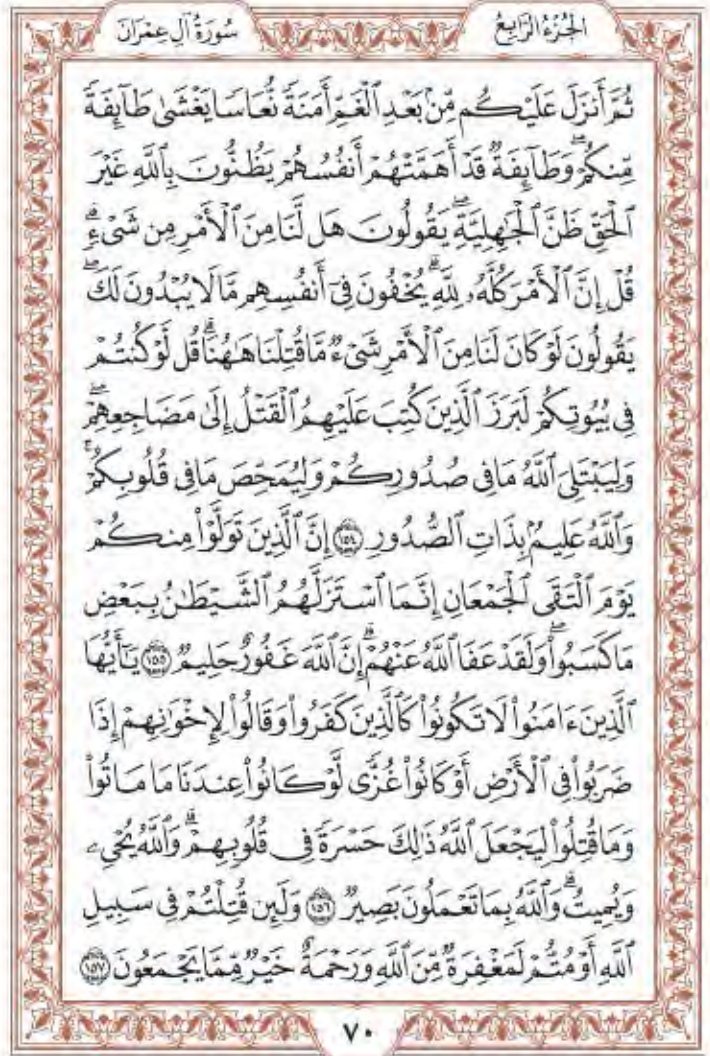 الجزء الرابع
سورة آل عمران
ثُمَّ أَنزَلَ عَلَيْكُم مِّنۢ بَعْدِ ٱلْغَمِّ أَمَنَةً نُّعَاسًا يَغْشَىٰ طَآئِفَةً
مِّنكُمْۖ وَطَآئِفَةٌ قَدْ أَهَمَّتْهُمْ أَنفُسُهُمْ يَظُنُّونَ بِٱللَّهِ غَيْرَ
ٱلْحَقِّ ظَنَّ ٱلْجَٰهِلِيَّةِۖ يَقُولُونَ هَل لَّنَا مِنَ ٱلْأَمْرِ مِن شَىْءٍۗ
قُلْ إِنَّ ٱلْأَمْرَ كُلَّهُۥ لِلَّهِۗ يُخْفُونَ فِىٓ أَنفُسِهِم مَّا لَا يُبْدُونَ لَكَۖ
يَقُولُونَ لَوْ كَانَ لَنَا مِنَ ٱلْأَمْرِ شَىْءٌ مَّا قُتِلْنَا هَٰهُنَاۗ قُل لَّوْ كُنتُمْ
فِى بُيُوتِكُمْ لَبَرَزَ ٱلَّذِينَ كُتِبَ عَلَيْهِمُ ٱلْقَتْلُ إِلَىٰ مَضَاجِعِهِمْۖ
وَلِيَبْتَلِىَ ٱللَّهُ مَا فِى صُدُورِكُمْ وَلِيُمَحِّصَ مَا فِى قُلُوبِكُمْۚ
وَٱللَّهُ عَلِيمٌۢ بِذَاتِ ٱلصُّدُورِ ١٥٤ إِنَّ ٱلَّذِينَ تَوَلَّوْا۟ مِنكُمْ
يَوْمَ ٱلْتَقَى ٱلْجَمْعَانِ إِنَّمَا ٱسْتَزَلَّهُمُ ٱلشَّيْطَٰنُ بِبَعْضِ
مَا كَسَبُوا۟ۖ وَلَقَدْ عَفَا ٱللَّهُ عَنْهُمْۗ إِنَّ ٱللَّهَ غَفُورٌ حَلِيمٌ ١٥٥ يَٰٓأَيُّهَا
ٱلَّذِينَ ءَامَنُوا۟ لَا تَكُونُوا۟ كَٱلَّذِينَ كَفَرُوا۟ وَقَالُوا۟ لِإِخْوَٰنِهِمْ إِذَا
ضَرَبُوا۟ فِى ٱلْأَرْضِ أَوْ كَانُوا۟ غُزًّى لَّوْ كَانُوا۟ عِندَنَا مَا مَاتُوا۟
وَمَا قُتِلُوا۟ لِيَجْعَلَ ٱللَّهُ ذَٰلِكَ حَسْرَةً فِى قُلُوبِهِمْۗ وَٱللَّهُ يُحْىِۦ
وَيُمِيتُۗ وَٱللَّهُ بِمَا تَعْمَلُونَ بَصِيرٌ ١٥٦ وَلَئِن قُتِلْتُمْ فِى سَبِيلِ
ٱللَّهِ أَوْ مُتُّمْ لَمَغْفِرَةٌ مِّنَ ٱللَّهِ وَرَحْمَةٌ خَيْرٌ مِّمَّا يَجْمَعُونَ ١٥٧
٧٠